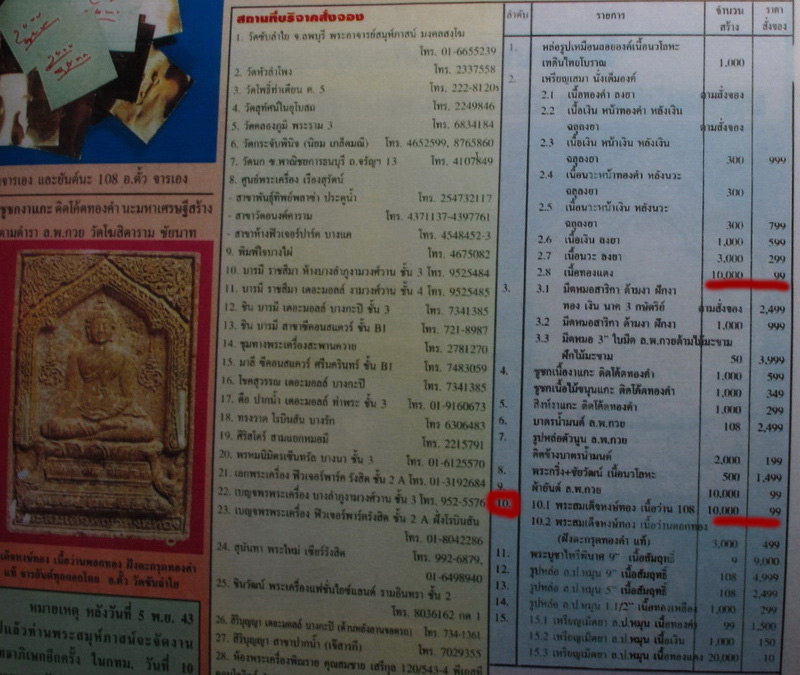 จารเอง และยันต์นะ 108 อ.ตั้ว จารเอง
ชูชกงาแกะ ติดโค้ดทองคำ นะมหาเศรษฐีสร้าง
ตามตำรา ล.พ.กวย วัดโฆสิตาราม ชัยนาท
สมเด็จหงษ์ทอง เนื้อว่านดอกทอง ฝังตะกรุดทองคำ
แท้ จารยันต์ทุกดอกโดย อ.ตั้ว วัดซับลำใย
หมายเหตุ หลังวันที่ 5 พ.ย. 43
แล้วท่านพระสมุห์ภาสน์จะจัดงาน
อีกครั้ง ในกทม. วันที่ 10
สถานที่บริจาคสั่งจอง
1. วัดซับลำใย จ.ลพบุรี พระอาจารย์สมุห์ภาสน์ มงคลสงโฆ
โทร. 01-6655239
2. วัดหัวลำโพง โทร. 2337558
3. วัดโพธิ์ท่าเตียน ค. 5 โทร. 222-8120
4. วัดสุทัศน์ในอุโบสถ โทร. 2249846
5. วัดคลองภูมิ พระราม 3 โทร. 6834184
6. วัดกระจับพินิจ (นิยม เกล็ดมณี) โทร. 4652599, 8765860
7. วัดนก ซ.พาณิชยการธนบุรี ถ.จรัญฯ 13 โทร. 4107849
8. ศูนย์พระเครื่อง เรืองสุรัตน์
- สาขาพันธุ์ทิพย์พลาซ่า ประตูน้ำ โทร. 254732117
- สาขาวัดอนงค์คาราม โทร. 4371137-4397761
- สาขาห้างฟิวเจอร์ปาร์ค บางแค โทร. 4548452-3
9. พิมพ์ใจบางไผ่ โทร. 4675082
10. บารมี ราชสีมา ห้างบางลำภูงามวงศ์วาน ชั้น 3 โทร. 9525484
11. บารมี ราชสีมา เดอะมอลล์ งามวงศ์วาน ชั้น 4 โทร. 9525485
12. ชิน บารมี เดอะมอลล์ บางกะปิ ชั้น 3 โทร. 7341385
13. ชิน บารมี สาขาซีคอนสแควร์ ชั้น B1 โทร. 721-8987
14. ชุมทางพระเครื่องสะพานควาย โทร. 2781270
15. มาลี ซีคอนสแควร์ ศรีนครินทร์ ชั้น B1 โทร. 7483059
16. โชคสุวรรณ เดอะมอลล์ บางกะปิ โทร. 7341385
17. ตือ ปากน้ำ เดอะมอลล์ ท่าพระ ชั้น 3 โทร. 01-9160673
18. ทรงวาด โรบินสัน บางรัก โทร. 6306483
19. ศิริสโตร์ สามแยกหมอมี โทร. 2215791
20. พรหมนิมิตรเซ็นทรัล บางนา ชั้น 3 โทร. 01-6125570
21. เอกพระเครื่อง ฟิวเจอร์พาร์ค รังสิต ชั้น 2 A โทร. 01-3192684
22. เบญจพรพระเครื่อง บางลำภูงามวงศ์วาน ชั้น 3 โทร. 952-5576
23. เบญจพรพระเครื่อง ฟิวเจอร์พาร์ครังสิต ชั้น 2 A ฝั่งโรบินสัน
โทร. 01-8042286
24. สุนันทา พระใหม่ เซียร์รังสิต โทร. 992-6879,
01-6498940
25. ชินวัฒน์ พระเครื่องแฟชั่นไอซ์แลนด์ รามอินทรา ชั้น 2
โทร. 8036162 กด 1
26. สิริบุญญา เดอะมอลล์ บางกะปิ (ด้านหลังลานจอดรถ) โทร. 734-1361
27. สิริบุญญา สาขาปากน้ำ (เจ๊สารภี) โทร. 7029355
28. ห้องพระเครื่องพิณราย คุณสมชาย เสรีกุล 120/543-4
ลำดับ รายการ จำนวนสร้าง ราคาสั่งจอง
1. หล่อรูปเหมือนลอยองค์เนื้อนวโลหะ
เททเดินไทยโบราณ 1,000
2. เหรียญเสมา นั่งเต็มองค์
2.1 เนื้อทองคำ ลงยา ตามสั่งจอง
2.2 เนื้อเงิน หน้าทองคำ หลังเงิน
ฉลุลงยา ตามสั่งจอง
2.3 เนื้อเงิน หน้าเงิน หลังเงิน
ฉลุลงยา 300 999
2.4 เนื้อนวะหน้าทองคำ หลังนวะ
ฉลุลงยา 300
2.5 เนื้อนวะหน้าเงิน หลังนวะ
ฉลุลงยา 300 799
2.6 เนื้อเงิน ลงยา 1,000 599
2.7 เนื้อนวะ ลงยา 3,000 299
2.8 เนื้อทองแดง 10,000 99
3. 3.1 มีดหมอสาริกา ด้ามงา ฝักงา
ทอง เงิน นาค 3 กษัตริย์ ตามสั่งจอง 2,499
3.2 มีดหมอสาริกา ด้ามงา ฝักงา 1,000 999
3.3 มีดหมอ 3" ใบมีด ล.พ.กวยด้ามไม้มะขาม
ฝักไม้มะขาม 50 3,999
4. ชูชกเนื้องาแกะ ติดโค้ดทองคำ 1,000 599
ชูชกเนื้อไม้ขนุนแกะ ติดโค้ดทองคำ 1,000 349
5. สิงห์งาแกะ ติดโค้ดทองคำ 1,000 299
6. บาตรน้ำมนต์ ล.พ.กวย 108 2,499
7. รูปหล่อตัวนูน ล.พ.กวย
ติดข้างบาตรน้ำมนต์ 2,000 199
8. พระกริ่ง+ชัยวัฒน์ เนื้อนวโลหะ 500 1,499
9. ผ้ายันต์ ล.พ.กวย 10,000 99
10. 10.1 พระสมเด็จหงษ์ทอง เนื้อว่าน 108 10,000 99
10.2 พระสมเด็จหงษ์ทอง เนื้อว่านดอกทอง
(ฝังตะกรุดทองคำ แท้) 3,000 499
11. พระบูชาไพรีพินาศ 9" เนื้อสัมฤทธิ์ 9 9,000
12. รูปหล่อ ล.ป.หมุน 9" เนื้อสัมฤทธิ์ 108 4,999
13. รูปหล่อ ล.ป.หมุน 5" เนื้อสัมฤทธิ์ 108 2,499
14. รูปหล่อ ล.ป.หมุน 1.1/2" เนื้อทองเหลือง 1,000 299
15. 15.1 เหรียญเม็ดยา ล.ป.หมุน เนื้อทองคำ 99 1,500
15.2 เหรียญเม็ดยา ล.ป.หมุน เนื้อเงิน 1,000 150
15.3 เหรียญเม็ดยา ล.ป.หมุน เนื้อทองแดง 20,000 10